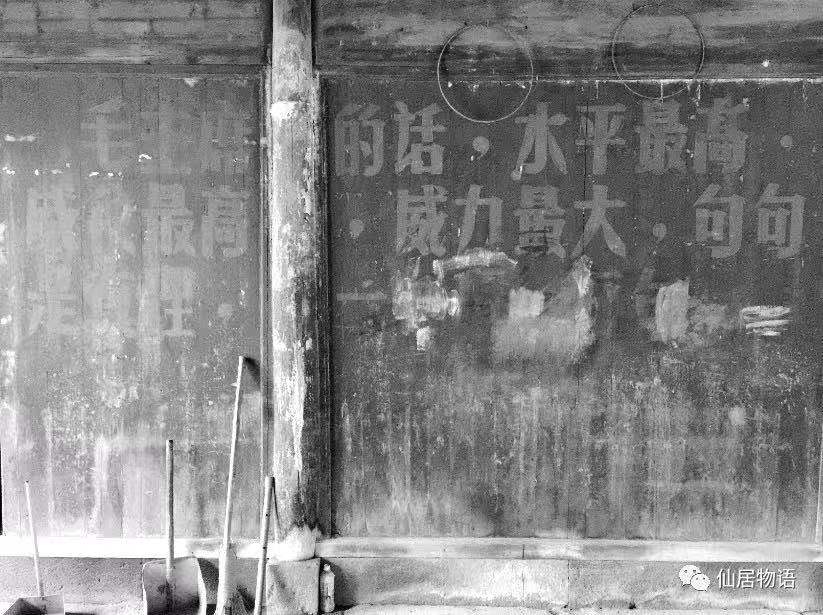 毛主席的话，水平最高，
威信最高，威力最大，句句
是真理，一
仙居物语